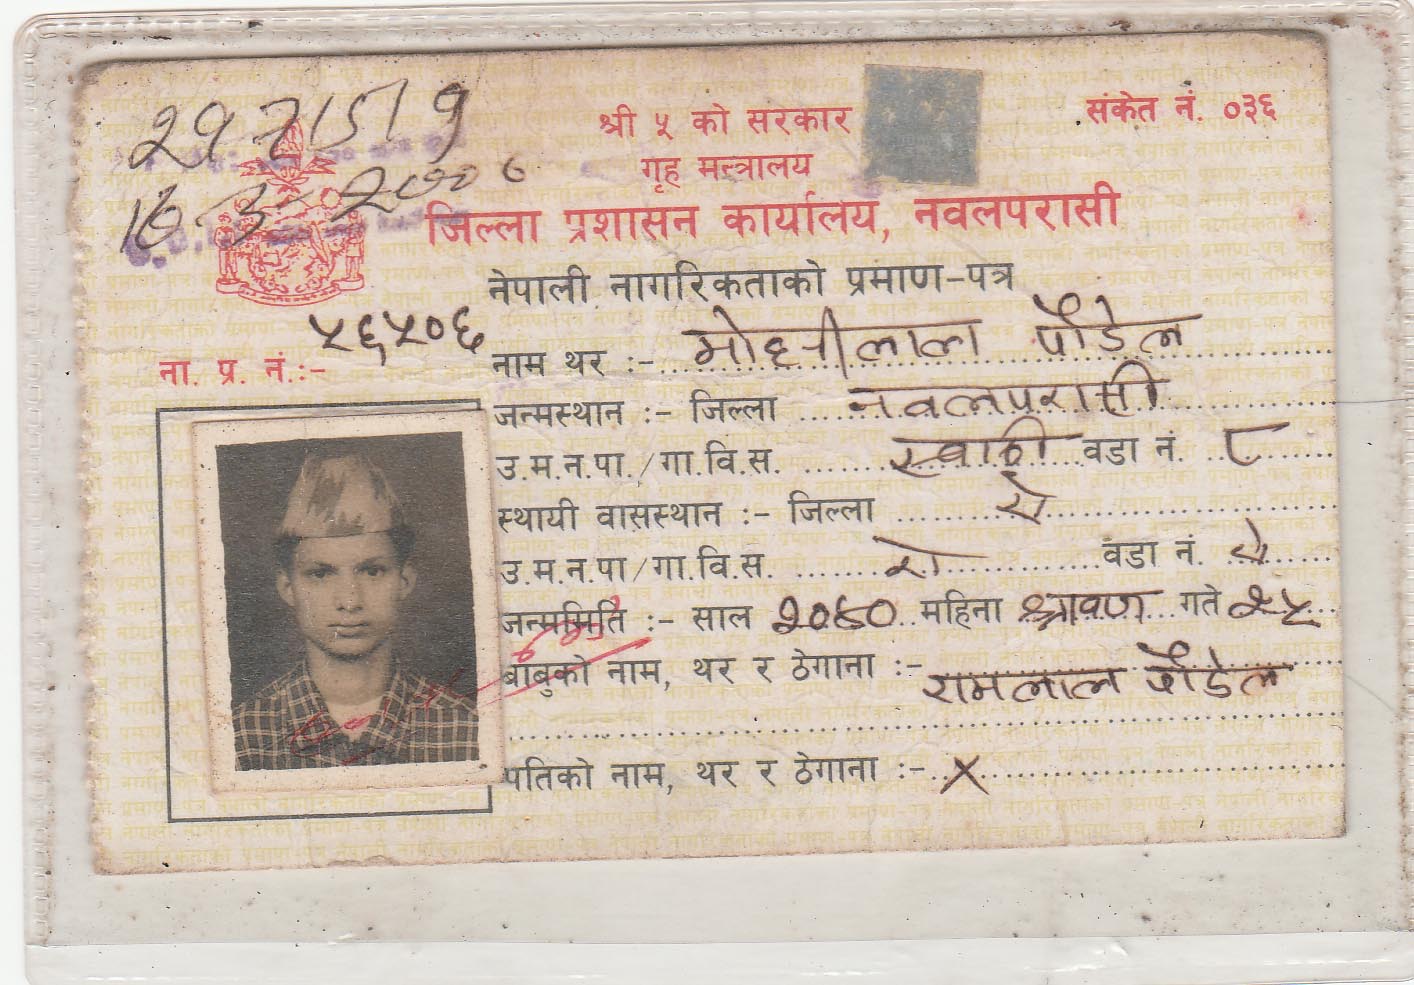 श्री ५ को सरकार
संकेत नं. ०३६
गृह मन्त्रालय
जिल्ला प्रशासन कार्यालय, नवलपरासी
नेपाली नागरिकताको प्रमाण-पत्र
ना. प्र. नं.:- ५६५०६
नाम थर :- पौडेल
जन्मस्थान :- जिल्ला नवलपरासी
उ.म.न.पा./गा.वि.स. स्वाठी वडा नं. ८
स्थायी वासस्थान :- जिल्ला ऐ
उ.म.न.पा/गा.वि.स. ऐ वडा नं. ऐ
जन्ममिति :- साल महिना श्रावण गते २५
बाबुको नाम, थर र ठेगाना :- रामलाल पौडेल
पतिको नाम, थर र ठेगाना :- X